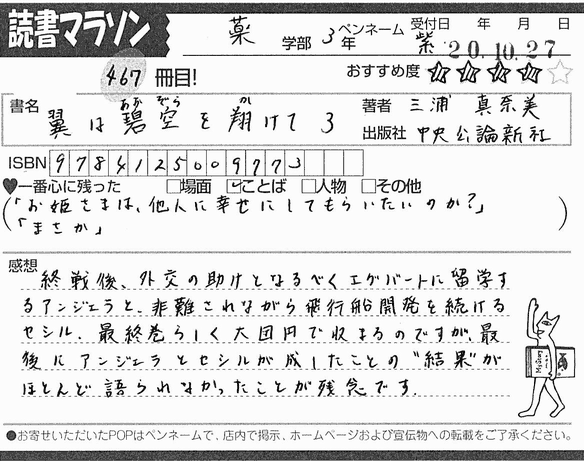 読書マラソン
薬 学部 3年 ペンネーム 紫 受付日 年 月 日
20.10.27
467 冊目! おすすめ度 ★★★★☆
書名 翼は碧空を翔けて 3
あお ぞら か
著者 三浦 真奈美
出版社 中央公論新社
ISBN 9784125009773
♥一番心に残った □場面 ☑ことば □人物 □その他
(「お姫さまは、他人に幸せにしてもらいたいのか?」
「まさか」)
感想
終戦後、外交の助けとなるべくエグバートに留学す
るアンジェラと、非難されながら飛行船開発を続ける
セシル。最終巻らしく大団円で収まるのですが、最
後にアンジェラとセシルが成したことの“結果”が
ほとんど語られなかったことが残念です.
Mystery
●お寄せいただいたPOPはペンネームで、店内で掲示、ホームページおよび宣伝物への転載をご了承ください。